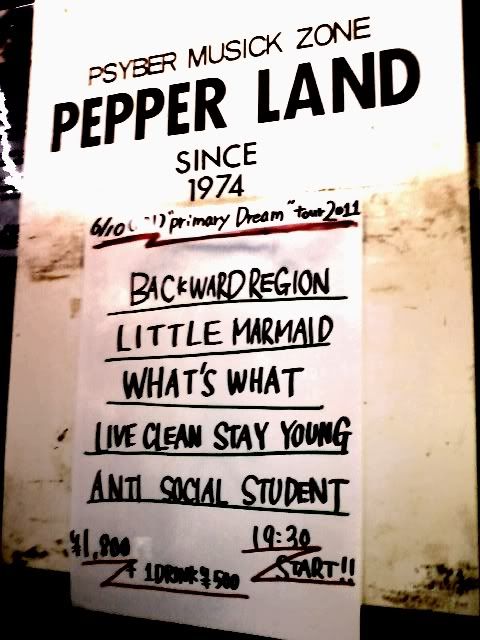 PSYBER MUSICK ZONE
PEPPER LAND
SINCE
1974
6/10 "primary Dream" tour 2011
BACKWARD REGION
LITTLE MARMAID
WHAT'S WHAT
LIVE CLEAN STAY YOUNG
ANTI SOCIAL STUDENT
¥1,800
19:30
1DRINK ¥500
START!!